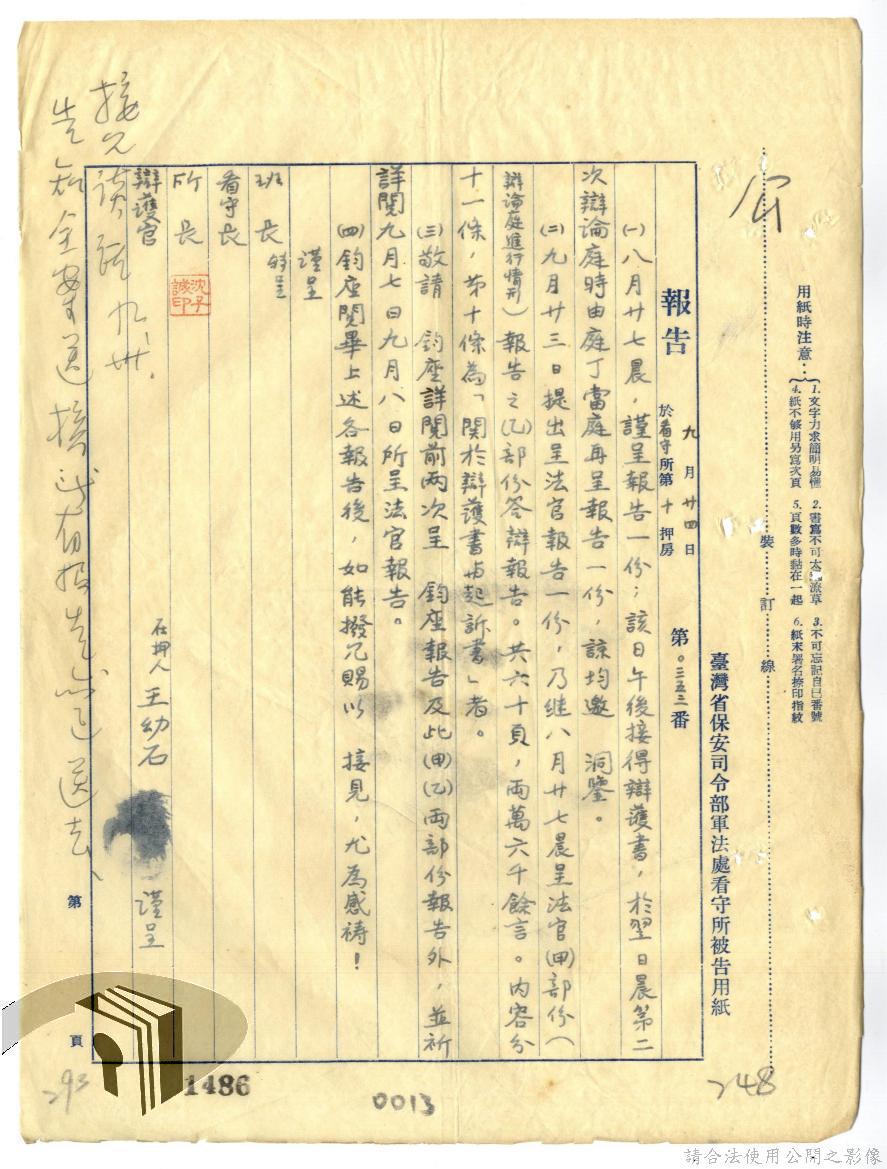 用紙時注意：
1. 文字力求簡明易懂
2. 書寫不可太潦草
3. 不可忘記自己番號
4. 紙不够用另寫次頁
5. 頁數多時黏在一起
6. 紙末署名捺印指紋
裝訂線
臺灣省保安司令部軍法處看守所被告用紙
報告 九月廿四日 於看守所第十押房 第０三五二番
㈠八月廿七晨，謹呈報告一份；該日午後接得辯護書，於翌日晨第二
次辯論庭時由庭丁當庭再呈報告一份，諒均邀 洞鑒。
㈡九月廿三日提出呈法官報告一份，乃繼八月廿七晨呈法官㈙部份（
辯論庭進行情形）報告之㈚部份答辯報告。共六十頁，兩萬六千餘言。內容分
十一條，第十條為「關於辯護書與起訴書」者。
㈢敬請 鈞座詳閱前兩次呈 鈞座報告及此㈙㈚兩部份報告外，並祈
詳閱九月七日九月八日所呈法官報告。
㈣鈞座閱畢上述各報告後，如能撥冗賜以 接見，尤為感禱！
謹呈
班長 轉呈
看守長
所長
沈子誠印
辯護官
在押人 王幼石 謹呈
第 頁
1486
0013
293
248
請合法使用公開之影像